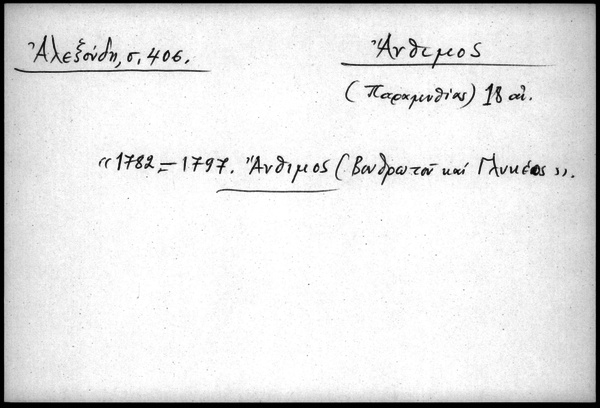 Ἀλεξούδη, σ. 406.
Ἄνθιμος
(Παραμυθίας) 18 αἰ.
«1782 = 1797. Ἄνθιμος (Βουθρωτοῦ καί Γλυκέος».